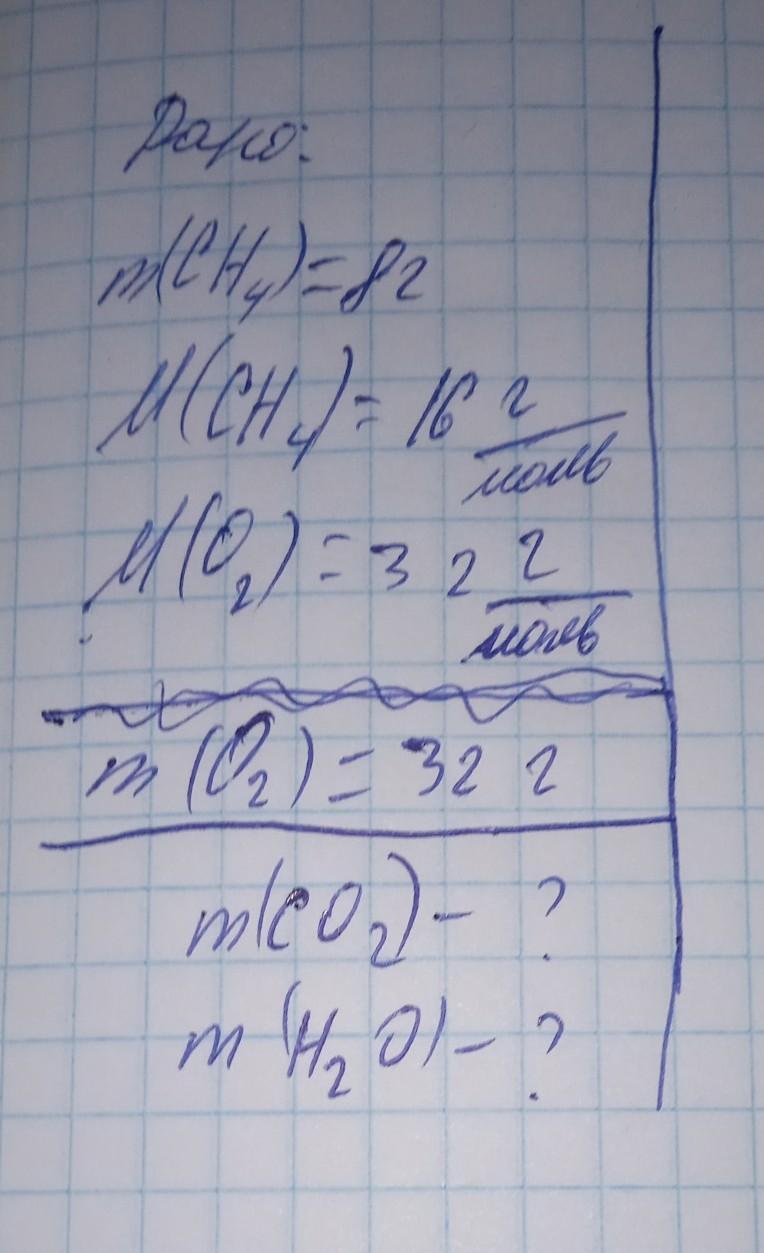 Дано:
m(CH₄)=8г
M(CH₄)= 16 г/моль
M(O₂)=32 г/моль
m(O₂)= 32 г
m(CO₂)- ?
m(H₂O)- ?